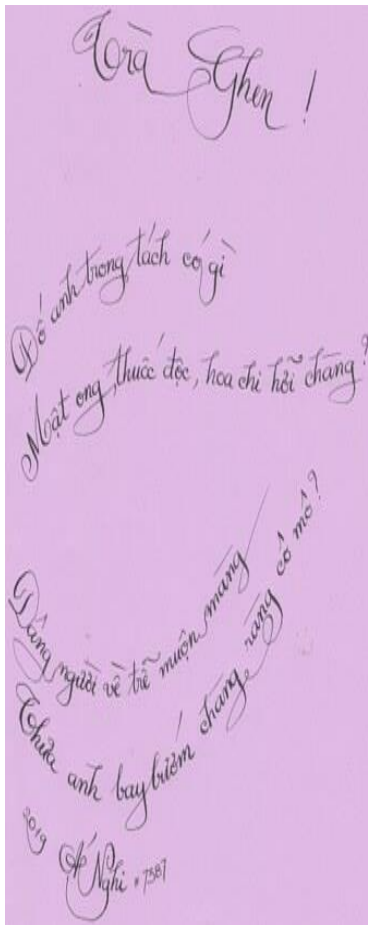 Trà Ghen !
Đố anh trong tách có gì
Mật ong, thuốc độc, hoa chi hỡi chàng?
Dâng người về trễ muộn màng
Thưa anh bay bướm chàng ràng cố mô?
2019 Á Nghi * 7387